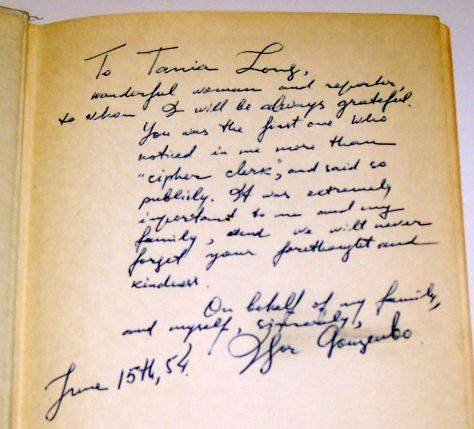 To Tania Long,
wonderful woman and reporter,
to whom I will be always grateful.
You was the first one who
noticed in me more than
"cipher clerk", and said so
publicly. It was extremely
important to me and my
family, and we will never
forget your forethought and
kindness.
On behalf of my family,
and myself, sincerely,
Igor Gouzenko
June 15th, 54.